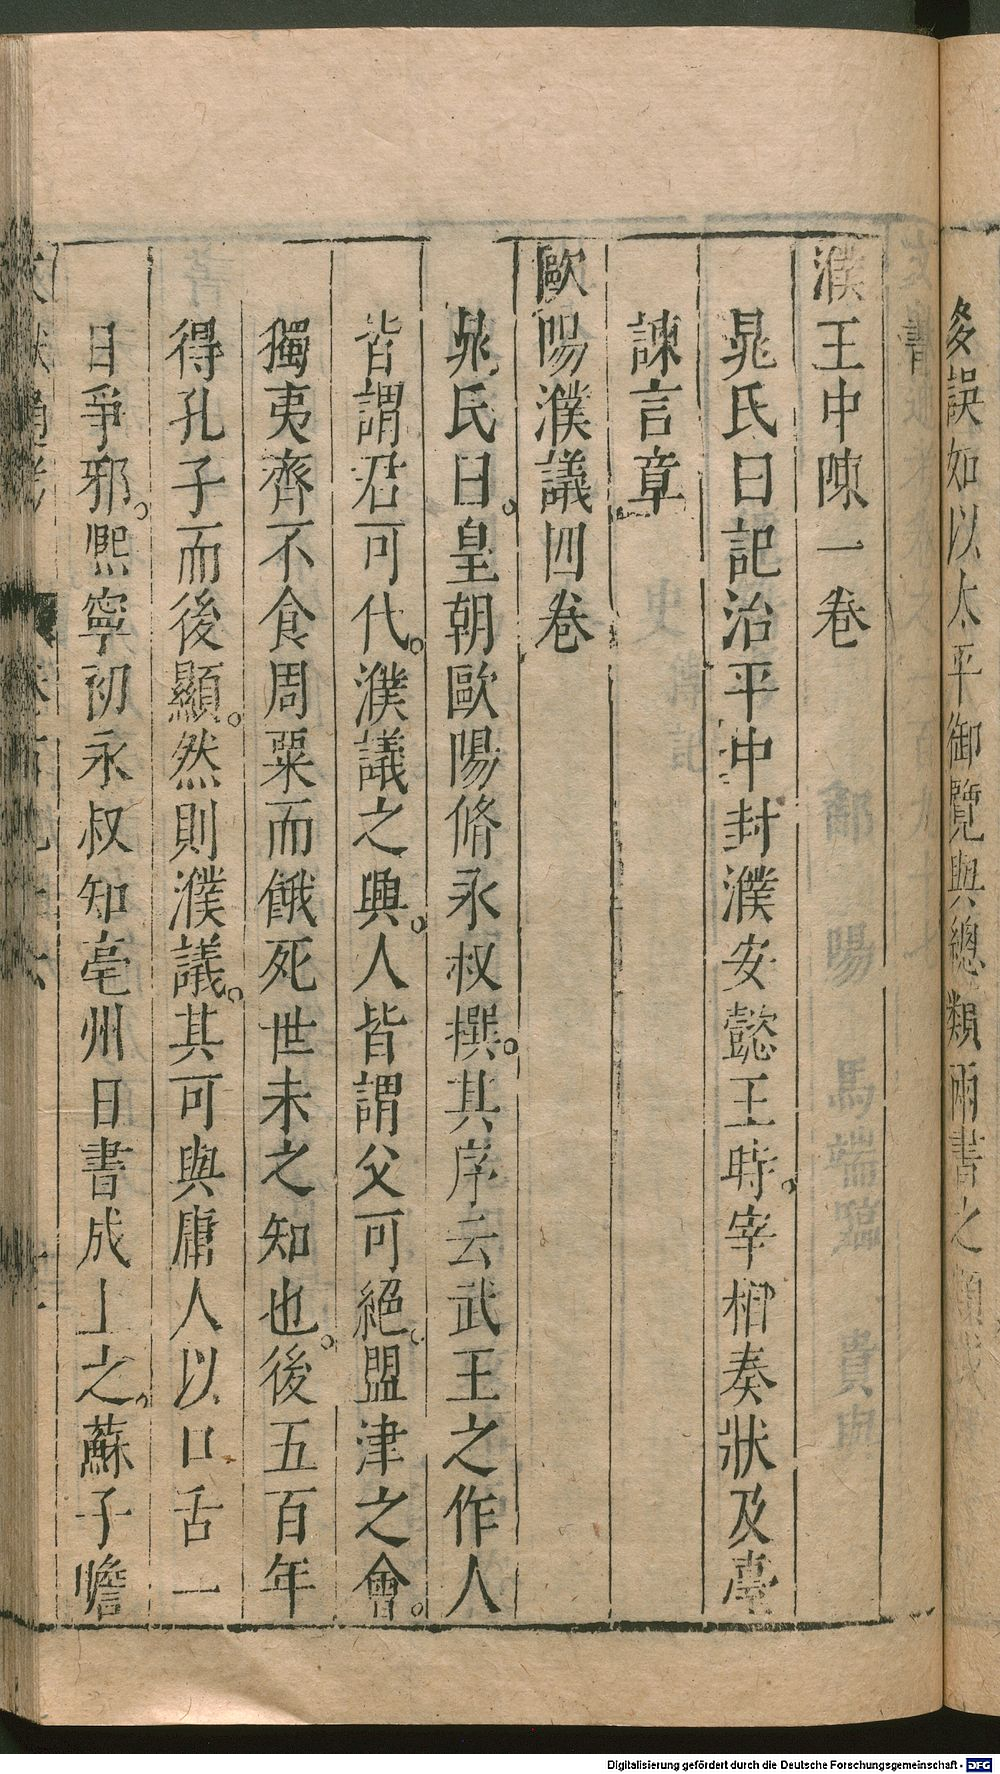 多誤如以太平御覽與總類兩書之類
濮王申陳一卷
晁氏曰記治平中封濮安懿王時。宰相奏狀及臺
諫言章
歐陽濮議四卷
晁氏曰。皇朝歐陽脩永叔撰。其序云武王之作人
皆謂君可代。濮議之興。人皆謂父可絕。盟津之會。
獨夷齊不食周粟而餓死世未之知也。後五百年
得孔子而後顯。然則濮議。其可與庸人以口舌一
日爭邪。熙寧初永叔知亳州日書成上之。蘇子瞻
Digitalisierung gefördert durch die Deutsche Forschungsgemeinschaft - DFG